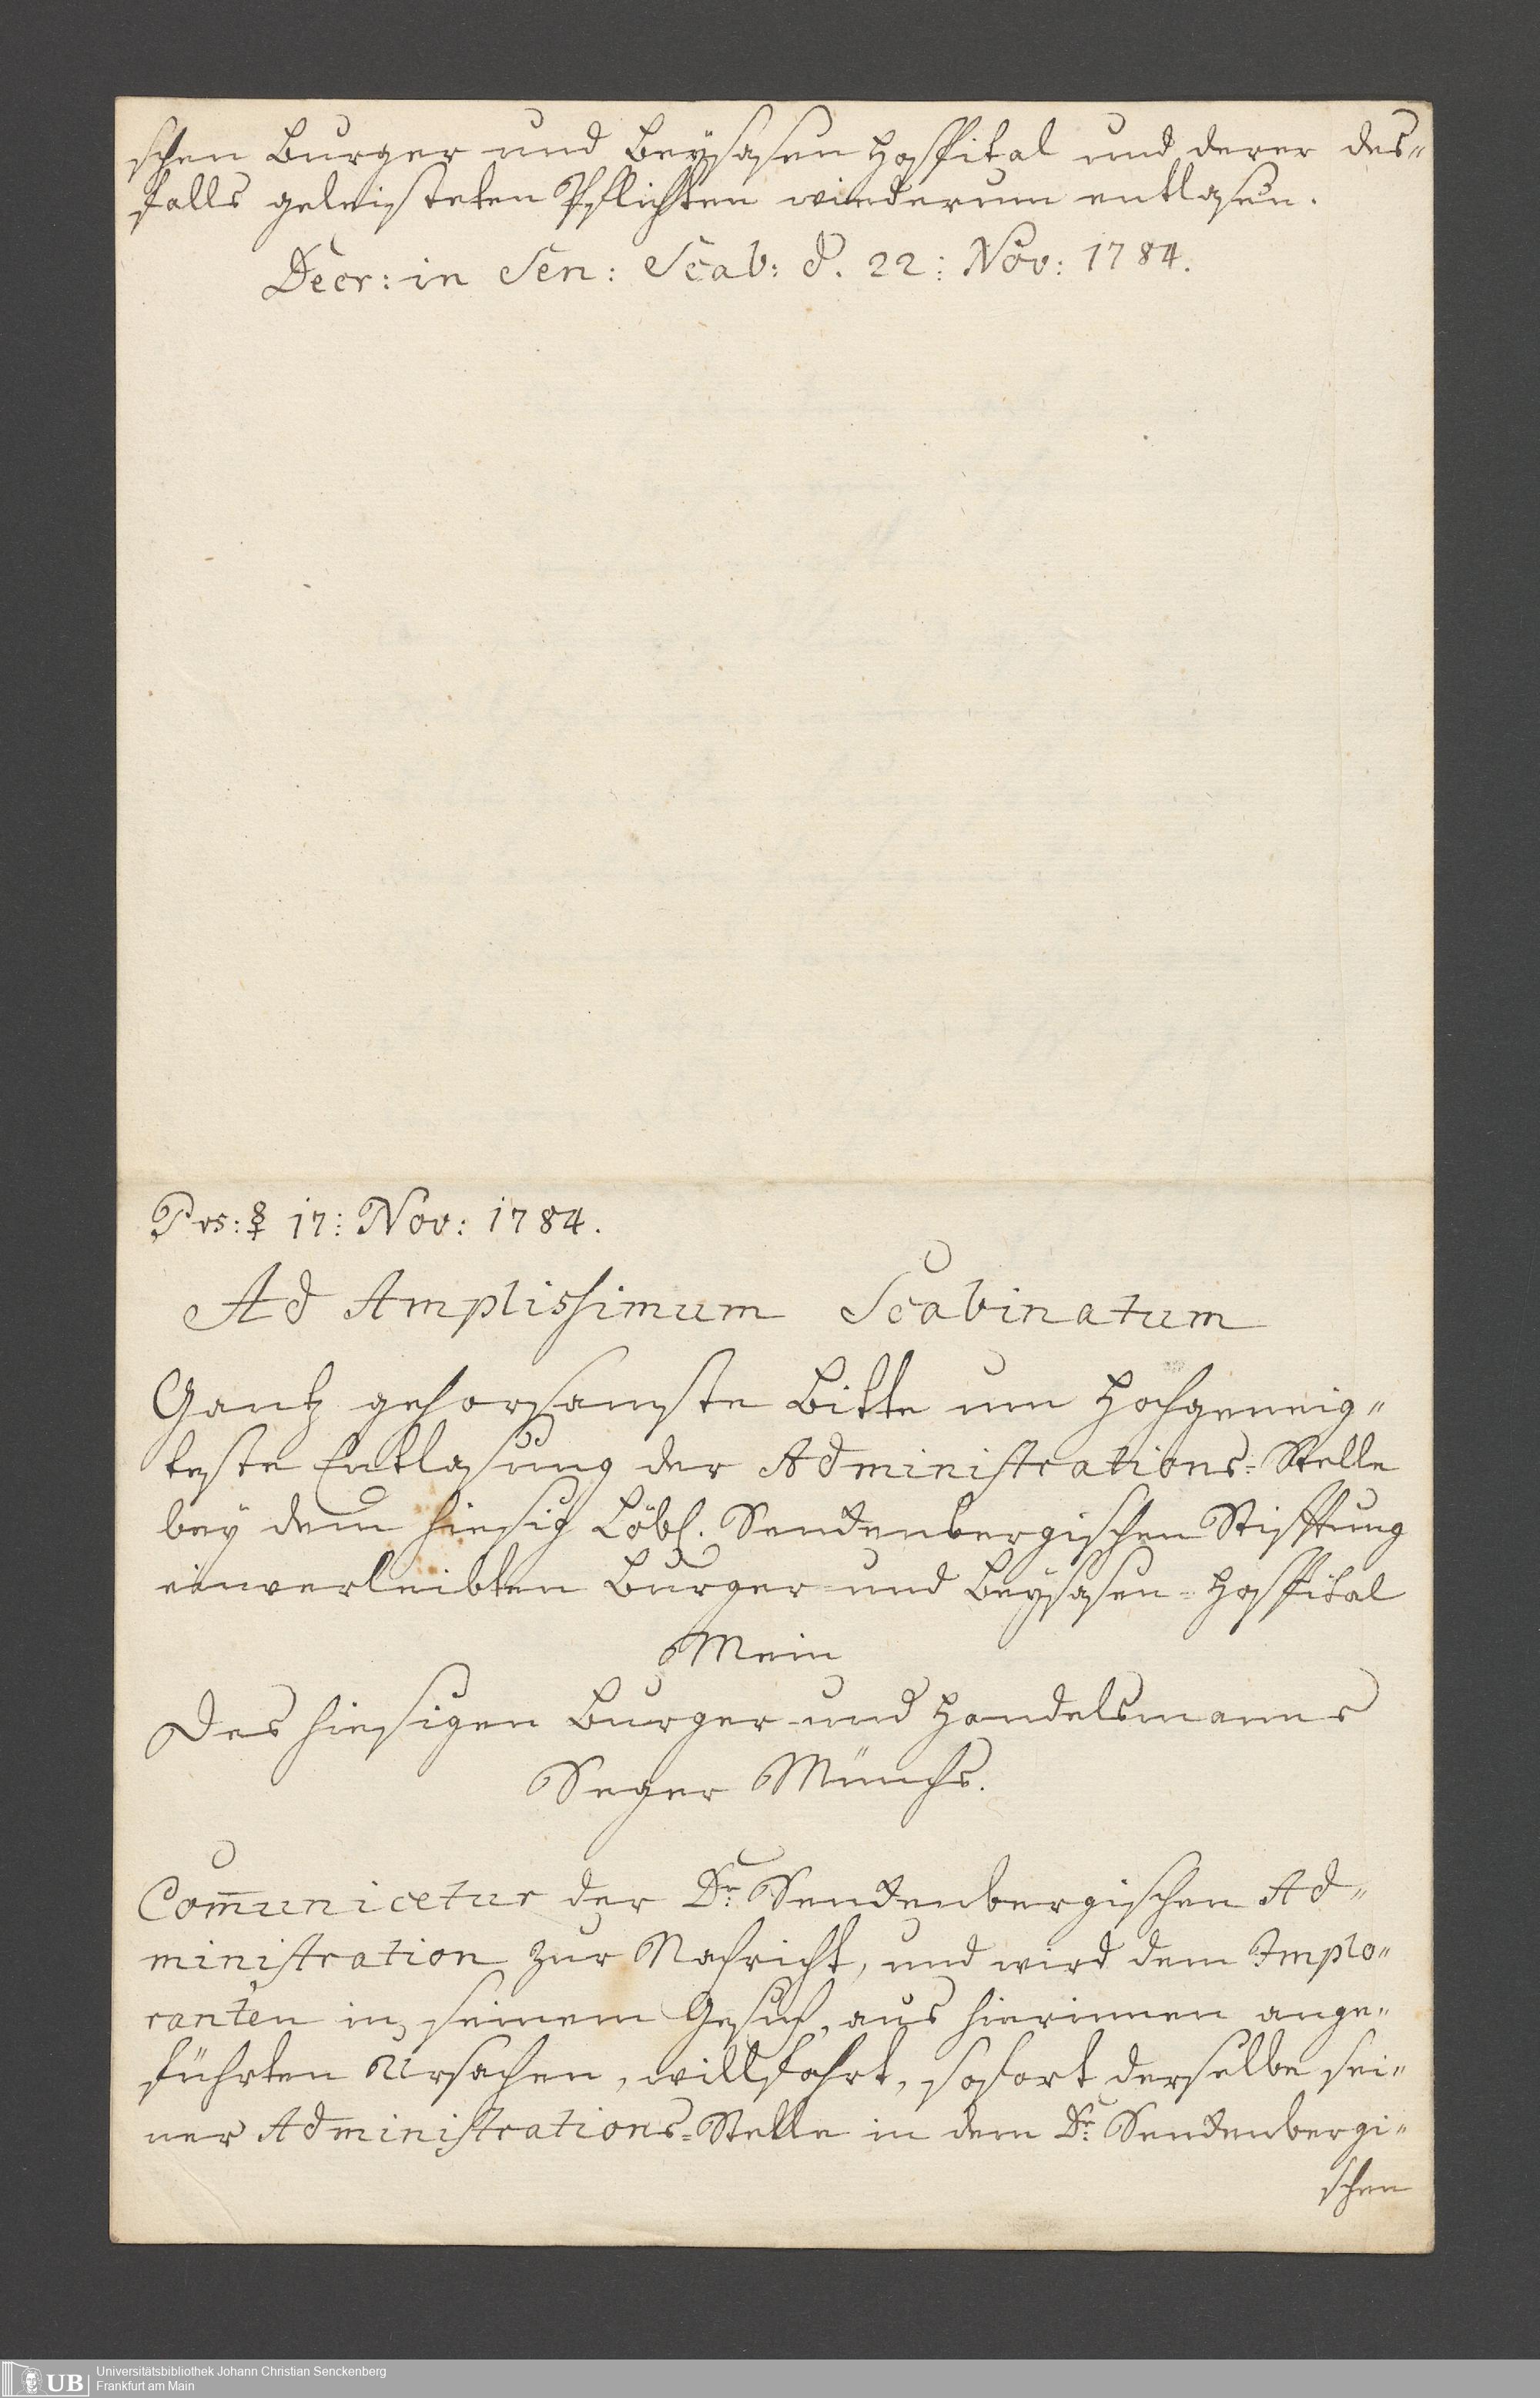 schen Burger und Beysasen Hospital und derer des„
falls geleisteten Pflichten wiederum entlasen.
Decr: in Sen: Scab: d. 22: Nov: 1784.
Prs: ☿ 17: Nov: 1784.
Ad Amplissimum Scabinatum
Gantz gehorsamste Bitte um Hochgeneig„
teste Entlasung der Administrations-Stelle
bey dem hiesig Löbl. Senckenbergischen Stifftung
einverleibten Burger und Beysasen-Hospital
Mein
Des hiesigen Burger und Handelsmanns
Seger Münchs.
Com̅unicetur der Dr. Senckenbergischen Ad„
ministration zur Nachricht, und wird dem Implo„
ranten in seinem Gesuch, aus hierinnen ange„
führten Ursachen, willfahrt, sofort derselbe sei„
ner Administrations-Stelle in dem Dr. Senckenbergi„
schen
UB
Universitätsbibliothek Johann Christian Senckenberg
Frankfurt am Main